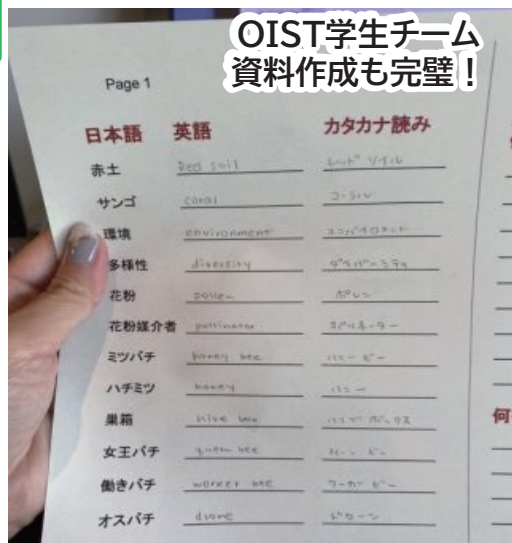 OIST学生チーム
資料作成も完璧！
Page 1
日本語 英語 カタカナ読み
赤土 Red soil レッド ソイル
サンゴ coral コーラル
環境 environment
多様性 diversity ダイバーシティ
花粉 pollen ポレン
花粉媒介者 pollinator
ミツバチ honey bee ハニー ビー
ハチミツ honey ハニー
巣箱 hive box ハイブ ボックス
女王バチ queen bee
働きバチ worker bee ワーカー ビー
オスバチ drone ドローン
何